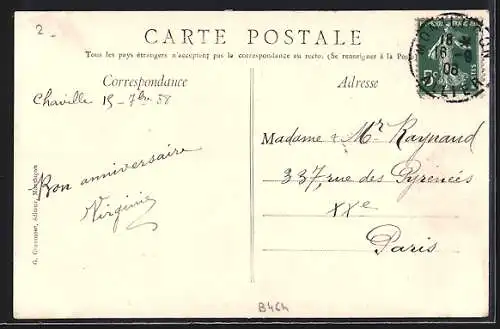 2
CARTE POSTALE
Tous les pays étrangers n'acceptent pas la correspondance au recto. (Se renseigner à la Poste)
Correspondance
Adresse
Chaville 15 - 7bre
Bon anniversaire
Virginie
Madame & Mr Raynaud
337, rue des Pyrénées
XXe
Paris
5c
18
16
08